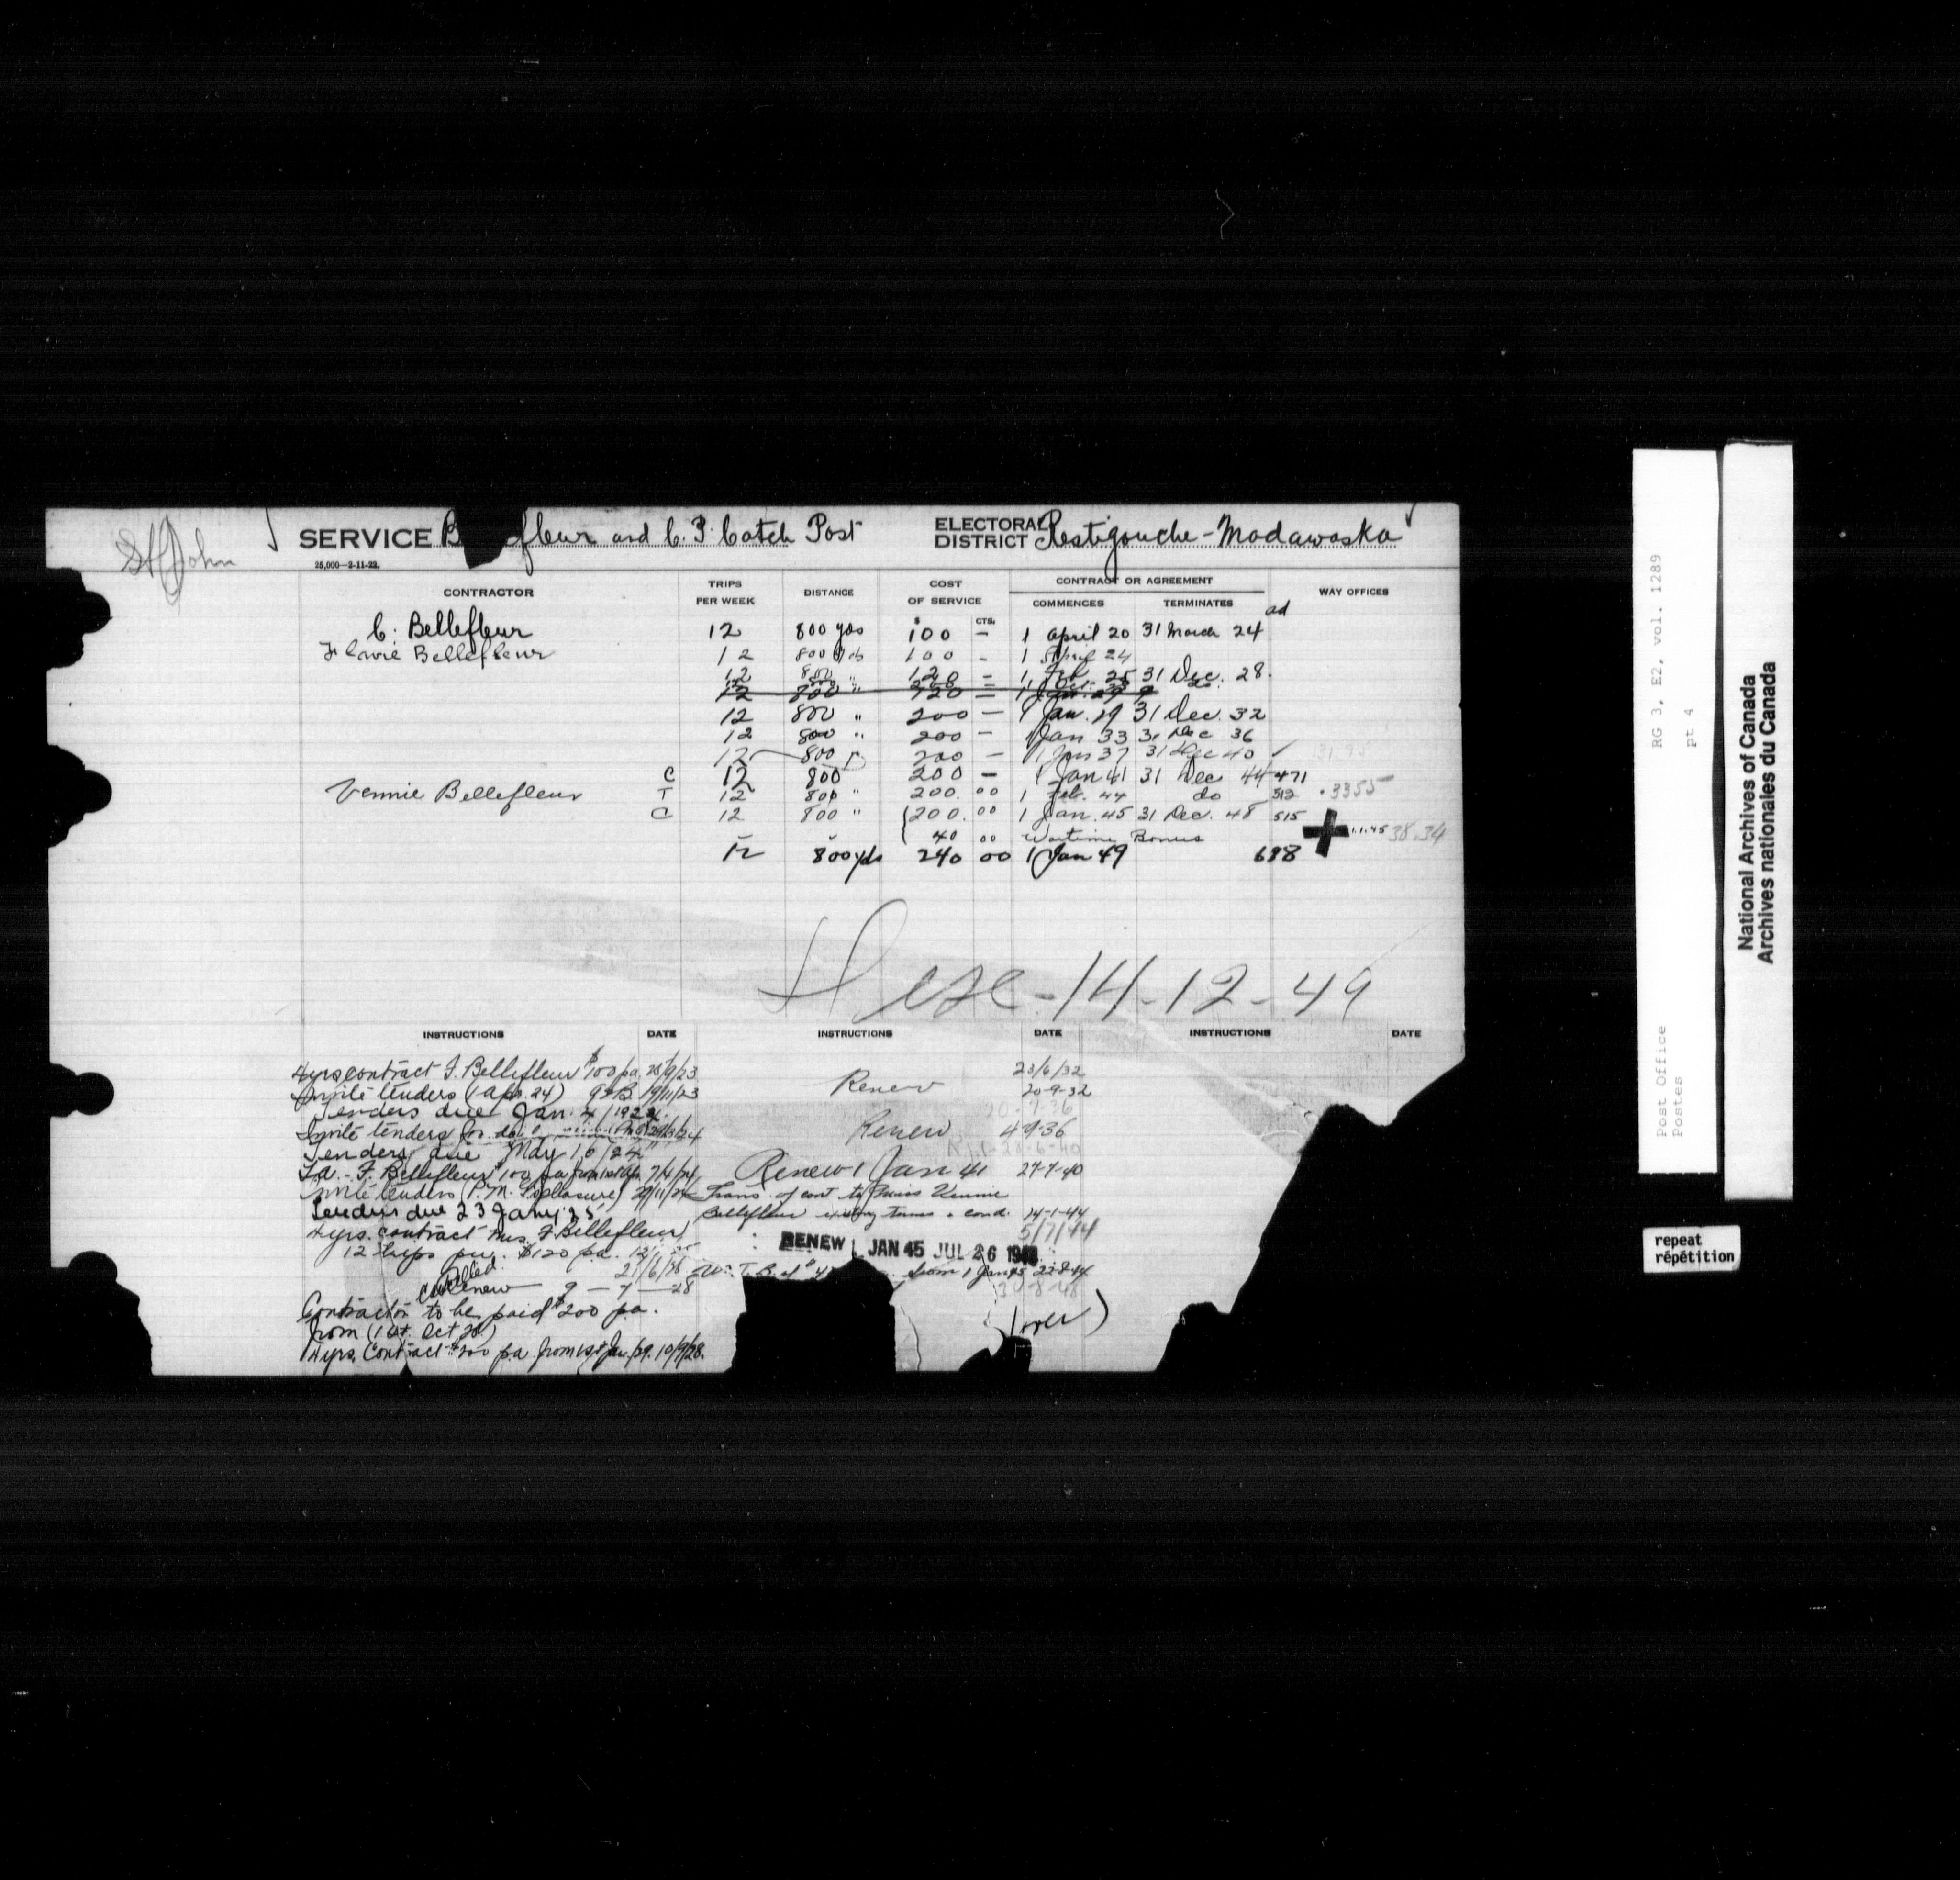 St John
SERVICE B fleur and C. P. Catch Post
ELECTORAL DISTRICT Restigouche-Madawaska
25,000—2-11-22.
CONTRACTOR TRIPS PER WEEK DISTANCE COST OF SERVICE CONTRACT OR AGREEMENT COMMENCES TERMINATES WAY OFFICES
$ CTS. ad
C. Bellefleur 12 800 yds 100 — 1 April 20 31 March 24
Flavie Bellefleur 12 800 yds 100 - 1 April 24
12 800 " 120 — 1 Feb. 25 31 Dec. 28.
12 800 " 120 — 1 Jan. 29
12 800 " 200 — 1 Jan. 29 31 Dec. 32
12 800 " 200 — 1 Jan 33 31 Dec 36
12 800 200 — 1 Jan 37 31 Dec 40 31.95
C 12 800 200 — 1 Jan 41 31 Dec 44 471
Vennie Bellefleur T 12 800 " 200. 00 1 Feb. 44 do 512 .3355
C 12 800 " 200. 00 1 Jan. 45 31 Dec. 48 515
40 00 Wartime Bonus 1.1.45 38.34
12 800 yds 240 00 1 Jan 49 698
Disc-14-12-49
INSTRUCTIONS DATE INSTRUCTIONS DATE INSTRUCTIONS DATE
4 yrs contract F. Bellefleur $100 pa.
Invite tenders (1 Apr. 24) 19/11/23
Tenders due Jan. 4/1924.
Invite tenders for do
Tenders due May 16/24
F. Bellefleur $100 pa from 1st Apr
Invite tenders (P.M. G's pleasure)
Tenders due 23 Jany 25
4 yrs. contract Mrs. F Bellefleur
12 trips pw. $120 pa.
Cancelled
Renew 9 — 7 — 28
Contractor to be paid $200 pa.
from (1st. Oct 28)
4 yrs. Contract $200 pa from 1st Jan/29. 10/9/28.
23/6/32
Renew 20-9-32
Renew 4-9-36
Renew 1 Jan 41 27-7-40
Trans. of cont to Miss Vennie
Bellefleur existing terms & cond. 14-1-44
5/7/44
RENEW 1 JAN 45 JUL 26
from 1 Jan 45
30-8-48
(over)
RG 3, E2, vol. 1289
pt 4
Post Office
Postes
National Archives of Canada
Archives nationales du Canada
repeat
répétition